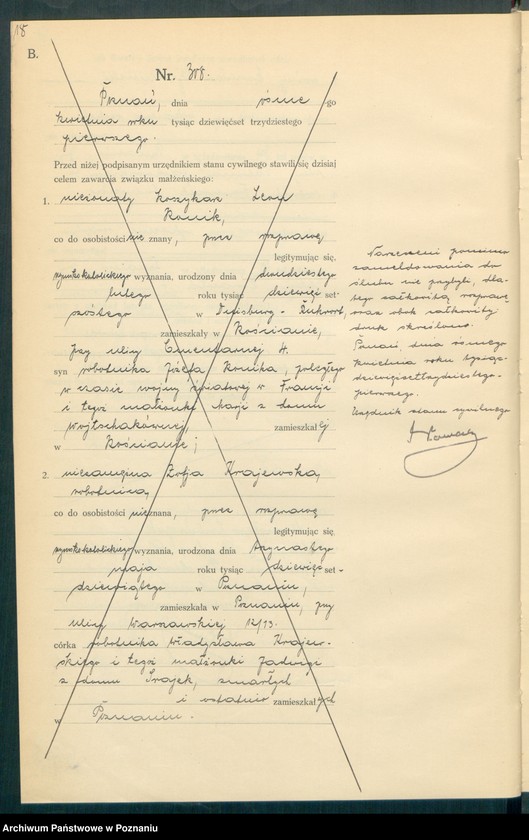 18
B.
Nr. 308.
Poznań, dnia ósme -go
kwietnia roku tysiąc dziewięćset trzydziestego
pierwszego.
Przed niżej podpisanym urzędnikiem stanu cywilnego stawili się dzisiaj
celem zawarcia związku małżeńskiego:
1. nieżonaty koszykarz Leon
Konik,
co do osobistości nie znany, przez rozprawę
legitymując się,
rzymskokatolickiego wyznania, urodzony dnia dwudziestego
lutego roku tysiąc dziewięć set-
szóstego w Duisburg - Ruhrort,
zamieszkały w Kościanie,
przy ulicy Cmentarnej 4.
syn robotnika Józefa Konika, poległego
w czasie wojny światowej w Francji
i tegoż małżonki Marji z domu
Wojtschakównej, zamieszkał ej
w Kościanie;
2. niezamężna Zofja Krajewska,
robotnica,
co do osobistości nieznana, przez rozprawę
legitymując się
rzymskokatolickiego wyznania, urodzona dnia trzynastego
maja roku tysiąc dziewięć set-
dziewiątego w Poznaniu,
zamieszkała w Poznaniu, przy
ulicy Warszawskiej 12/13.
córka robotnika Władysława Krajew-
skiego i tegoż małżonki Jadwigi
z domu Srajek, zmarłych
i ostatnio zamieszkał ych
w Poznaniu.
Narzeczeni pomimo
zameldowania do
ślubu nie przybyli, dla-
tego całkowitą rozprawę
oraz obok całkowity
druk skreślono.
Poznań, dnia ósmego
kwietnia roku tysiąc-
dziewięćsettrzydziestego-
pierwszego.
Urzędnik stanu cywilnego
Archiwum Państwowe w Poznaniu